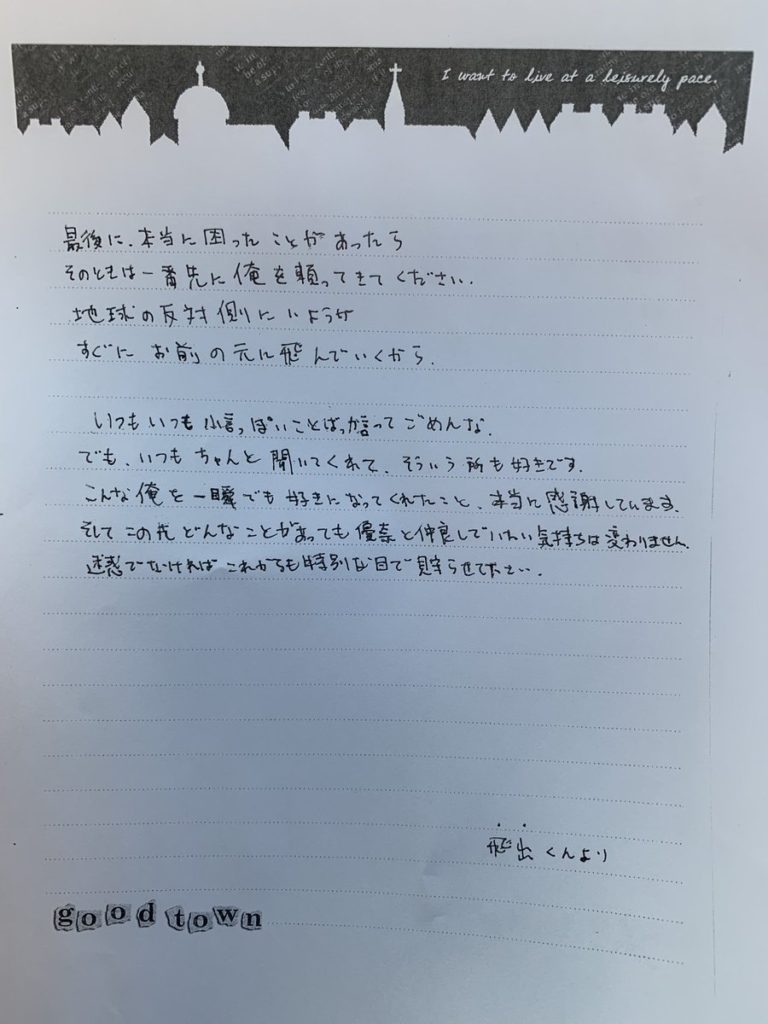 I want to live at a leisurely pace.
最後に、本当に困ったことがあったら
そのときは一番先に俺を頼ってきてください.
地球の反対側にいようが
すぐに お前の元に飛んでいくから.
いつもいつも小言っぽいことばっか言ってごめんな.
でも、いつもちゃんと聞いてくれて、そういう所も好きです.
こんな俺を一瞬でも好きになってくれたこと、本当に感謝しています.
そしてこの先どんなことがあっても優奈と仲良していたい気持ちは変わりません.
迷惑でなければこれからも特別な目で見守らせて下さい.
飛出くんより
good town